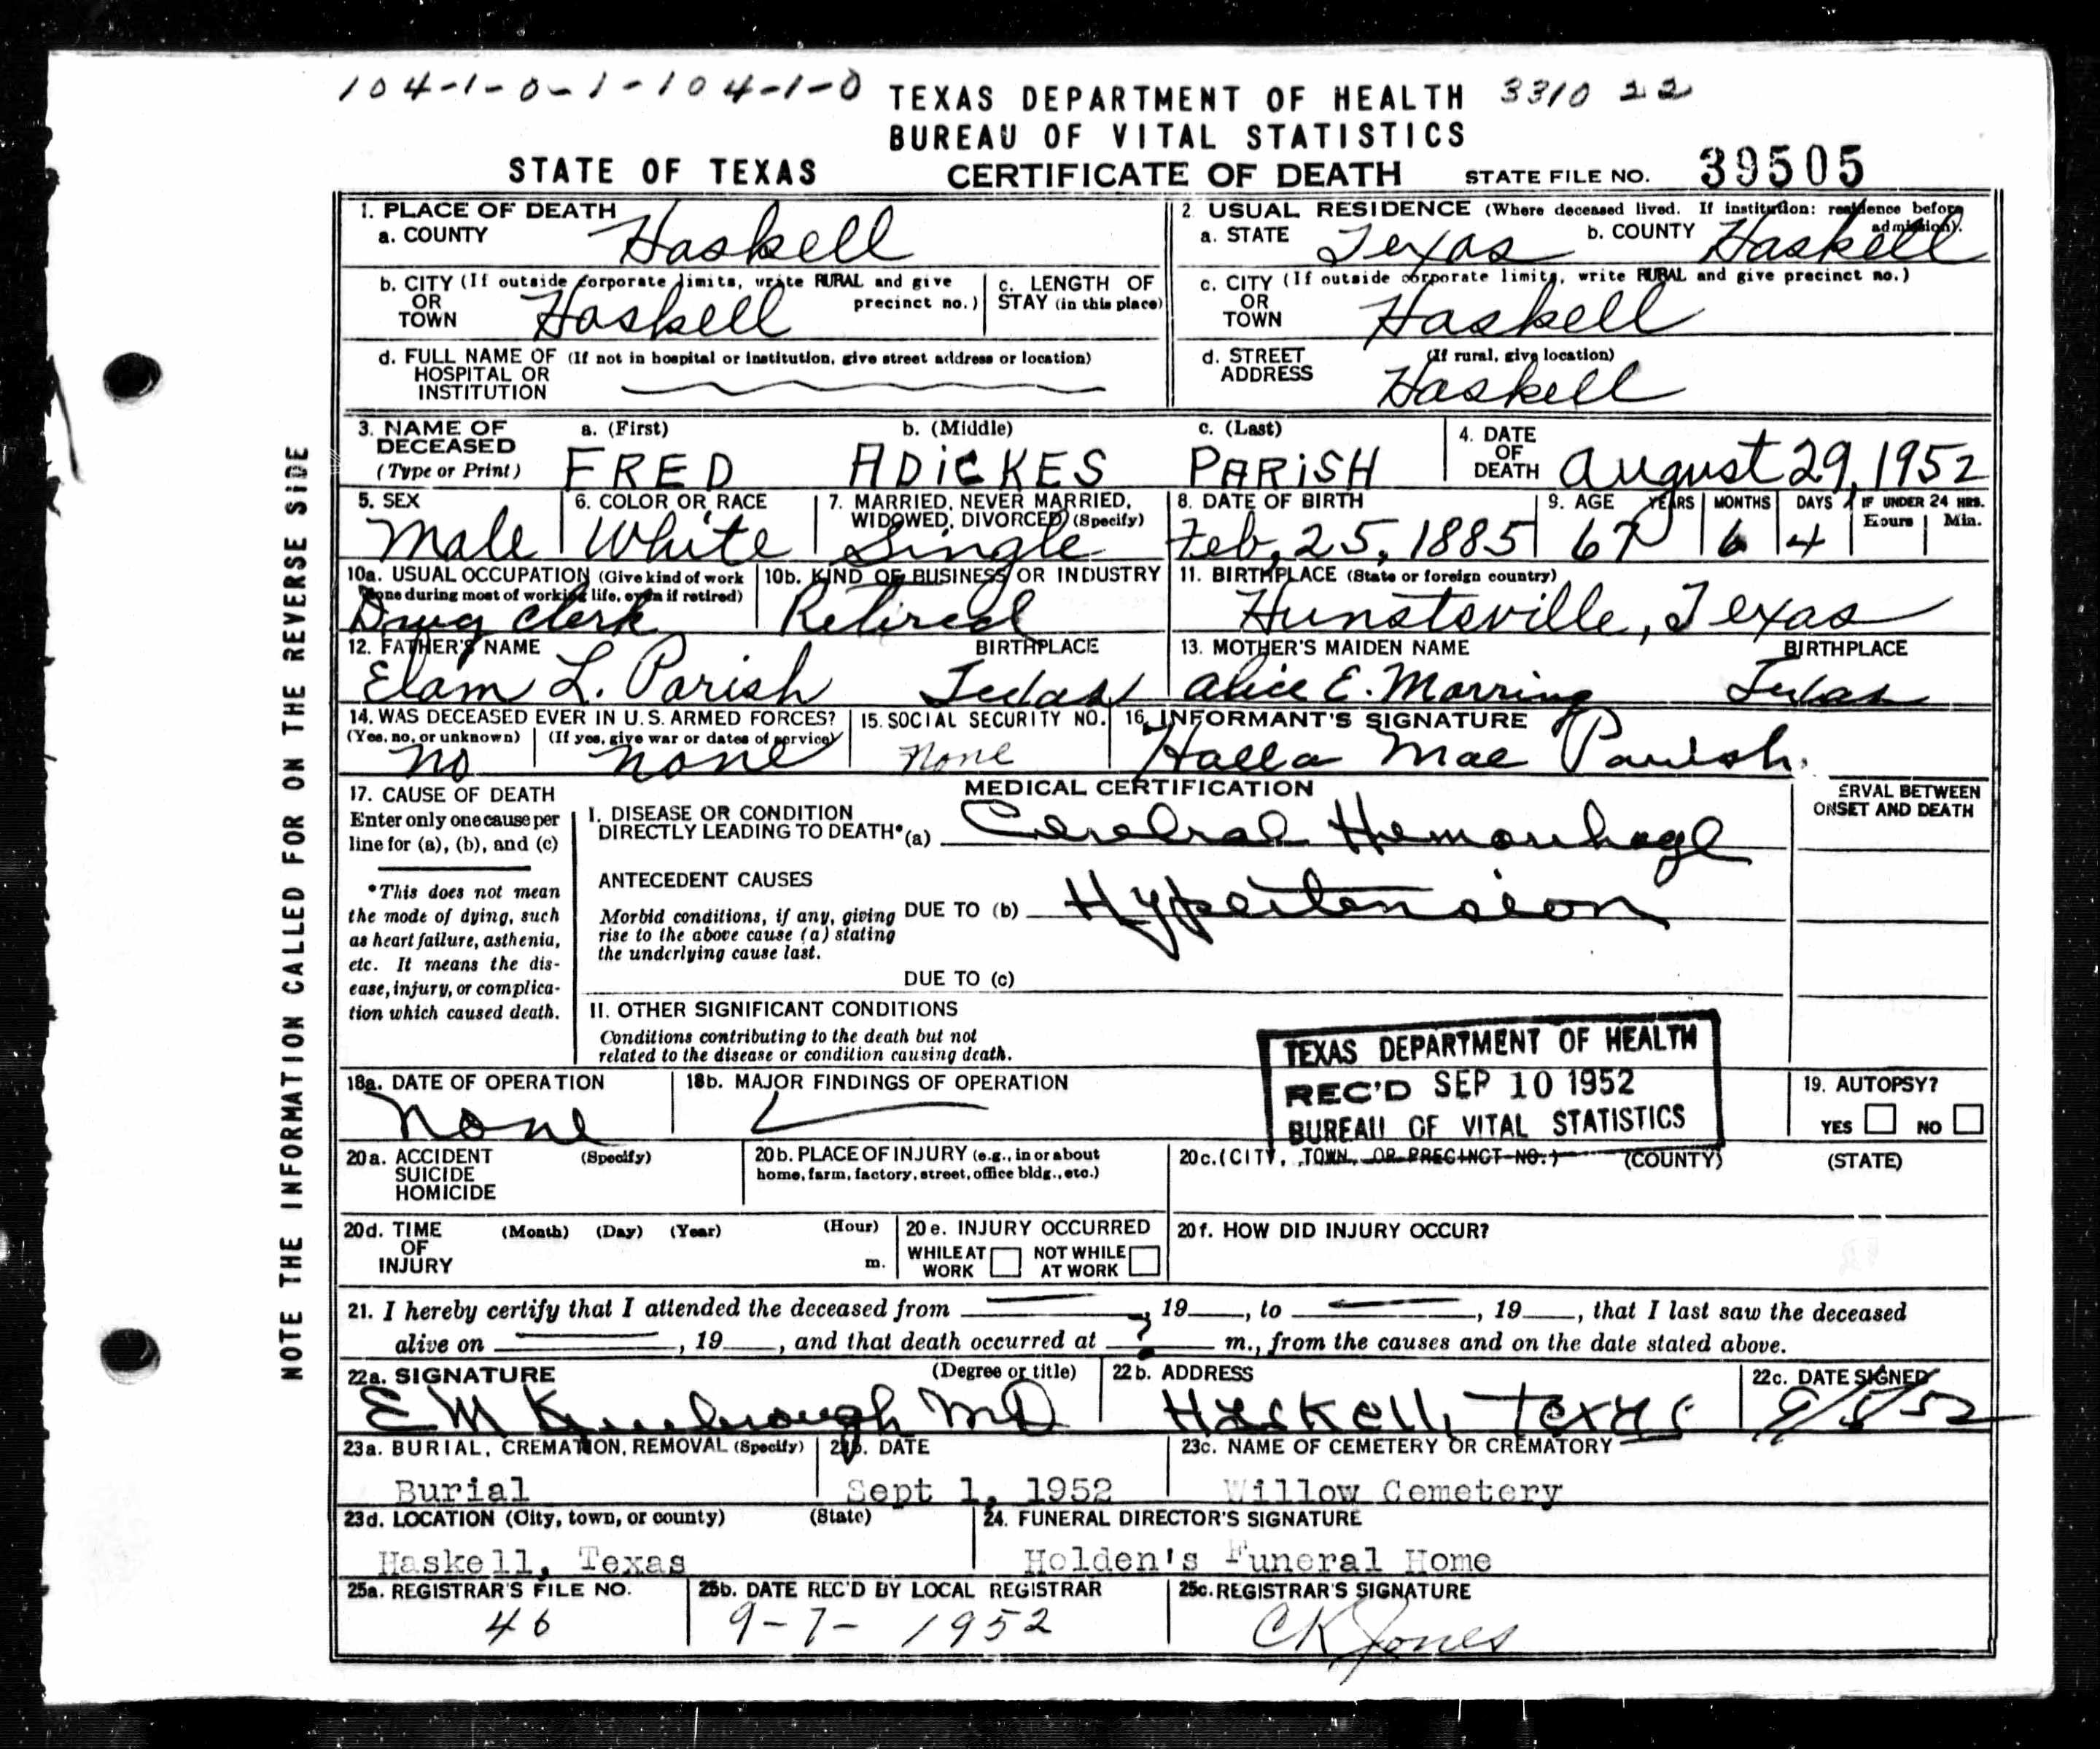 104-1-0-1-104-1-0 TEXAS DEPARTMENT OF HEALTH 3310 22
BUREAU OF VITAL STATISTICS
STATE OF TEXAS CERTIFICATE OF DEATH STATE FILE NO. 39505
NOTE THE INFORMATION CALLED FOR ON THE REVERSE SIDE
1. PLACE OF DEATH
a. COUNTY Haskell
2. USUAL RESIDENCE (Where deceased lived. If institution: residence before admission).
a. STATE Texas b. COUNTY Haskell
b. CITY (If outside corporate limits, write RURAL and give precinct no.)
OR
TOWN Haskell
c. LENGTH OF
STAY (in this place)
c. CITY (If outside corporate limits, write RURAL and give precinct no.)
OR
TOWN Haskell
d. FULL NAME OF (If not in hospital or institution, give street address or location)
HOSPITAL OR
INSTITUTION
d. STREET (If rural, give location)
ADDRESS Haskell
3. NAME OF DECEASED (Type or Print)
a. (First) b. (Middle) c. (Last)
FRED ADICKES PARISH
4. DATE OF DEATH August 29, 1952
5. SEX
Male
6. COLOR OR RACE
White
7. MARRIED, NEVER MARRIED,
WIDOWED, DIVORCED (Specify)
Single
8. DATE OF BIRTH
Feb, 25, 1885
9. AGE YEARS MONTHS DAYS IF UNDER 24 HRS.
Hours Min.
67 6 4
10a. USUAL OCCUPATION (Give kind of work
done during most of working life, even if retired)
Drug clerk
10b. KIND OF BUSINESS OR INDUSTRY
Retired
11. BIRTHPLACE (State or foreign country)
Hunstsville, Texas
12. FATHER'S NAME BIRTHPLACE
Elam L. Parish Texas
13. MOTHER'S MAIDEN NAME BIRTHPLACE
Alice E. Morring Texas
14. WAS DECEASED EVER IN U.S. ARMED FORCES?
(Yes, no, or unknown) (If yes, give war or dates of service)
no none
15. SOCIAL SECURITY NO.
None
16. INFORMANT'S SIGNATURE
Mae Parish.
17. CAUSE OF DEATH
Enter only one cause per
line for (a), (b), and (c)
*This does not mean
the mode of dying, such
as heart failure, asthenia,
etc. It means the dis-
ease, injury, or complica-
tion which caused death.
MEDICAL CERTIFICATION
ERVAL BETWEEN
ONSET AND DEATH
I. DISEASE OR CONDITION
DIRECTLY LEADING TO DEATH* (a) Cerebral Hemorrhage
ANTECEDENT CAUSES
Morbid conditions, if any, giving
rise to the above cause (a) stating
the underlying cause last.
DUE TO (b) Hypertension
DUE TO (c)
II. OTHER SIGNIFICANT CONDITIONS
Conditions contributing to the death but not
related to the disease or condition causing death.
TEXAS DEPARTMENT OF HEALTH
REC'D SEP 10 1952
BUREAU OF VITAL STATISTICS
18a. DATE OF OPERATION
None
18b. MAJOR FINDINGS OF OPERATION
19. AUTOPSY?
YES NO
20a. ACCIDENT (Specify)
SUICIDE
HOMICIDE
20b. PLACE OF INJURY (e.g., in or about
home, farm, factory, street, office bldg., etc.)
20c. (CITY, TOWN, OR PRECINCT NO.) (COUNTY) (STATE)
20d. TIME (Month) (Day) (Year) (Hour)
OF
INJURY m.
20e. INJURY OCCURRED
WHILE AT WORK NOT WHILE AT WORK
20f. HOW DID INJURY OCCUR?
21. I hereby certify that I attended the deceased from , 19 , to , 19 , that I last saw the deceased
alive on , 19 , and that death occurred at ? m., from the causes and on the date stated above.
22a. SIGNATURE (Degree or title)
E M Kimbrough MD
22b. ADDRESS
Haskell, Texas
22c. DATE SIGNED
9/5/52
23a. BURIAL, CREMATION, REMOVAL (Specify)
Burial
23b. DATE
Sept 1, 1952
23c. NAME OF CEMETERY OR CREMATORY
Willow Cemetery
23d. LOCATION (City, town, or county) (State)
Haskell, Texas
24. FUNERAL DIRECTOR'S SIGNATURE
Holden's Funeral Home
25a. REGISTRAR'S FILE NO.
46
25b. DATE REC'D BY LOCAL REGISTRAR
9-7-1952
25c. REGISTRAR'S SIGNATURE
CK Jones